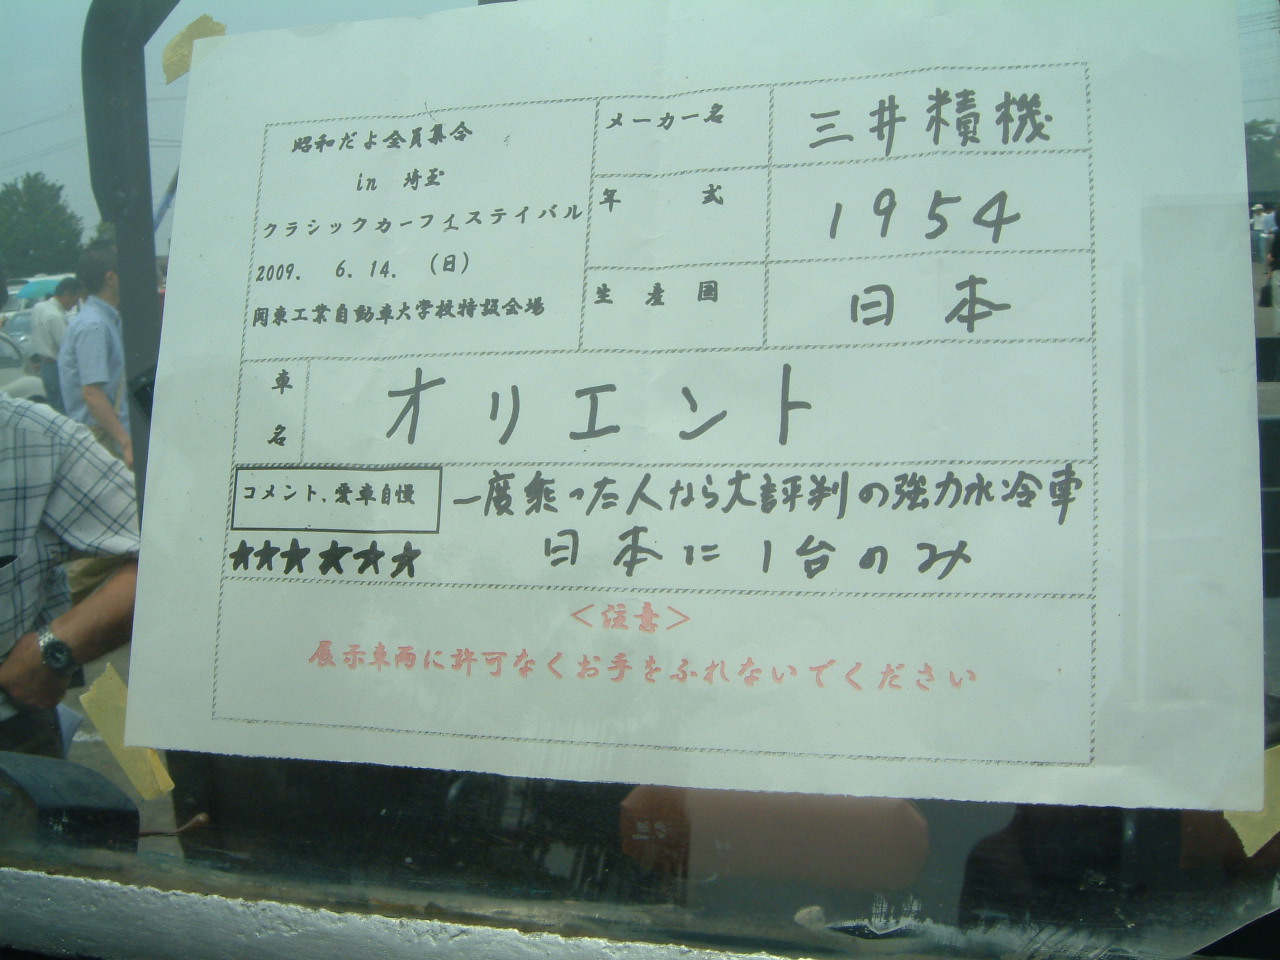 昭和だよ全員集合
in 埼玉
クラシックカーフェステイバル
2009. 6. 14. (日)
関東工業自動車大学校特設会場
メーカー名 三井精機
年式 1954
生産国 日本
車名 オリエント
コメント、愛車自慢 一度乗った人なら大評判の強力水冷車
★★★★★★ 日本に1台のみ
<注意>
展示車両に許可なくお手をふれないでください